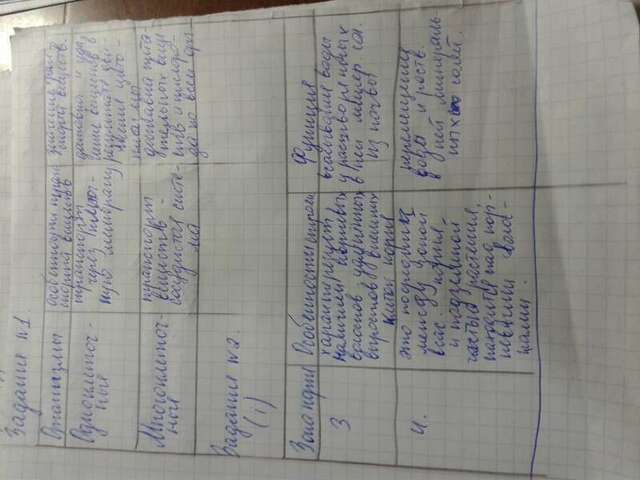 Задания №1.
Организмы
Особенности тран-
спорта веществ
значение тран-
спорта веществ.
Одноклеточ-
ные
транспорт
через клеточ-
ную мембрану
доставка и уда-
ление веществ в
результате дви-
жения цито-
плазмы
Многоклеточ-
ные
транспорт
веществ -
сосудистая систе-
ма
доставка пита-
тельных веще
ств и кислоро-
да по всей
Задания №2.
(1)
Зона корня
Особенности строен
Функция
3
характерезует
наличием корневых
волосков, удлиненных
выростов внешних
клеток корня
всасывание воды
и растворенных
в ней минер. сол.
из почвы
4.
это посредник
между зоной
всас. корня,
и подземной
частью растения,
находится над кор-
невыми волос-
ками.
перемещение
воды и раств.
в ней минераль-
ных солей.